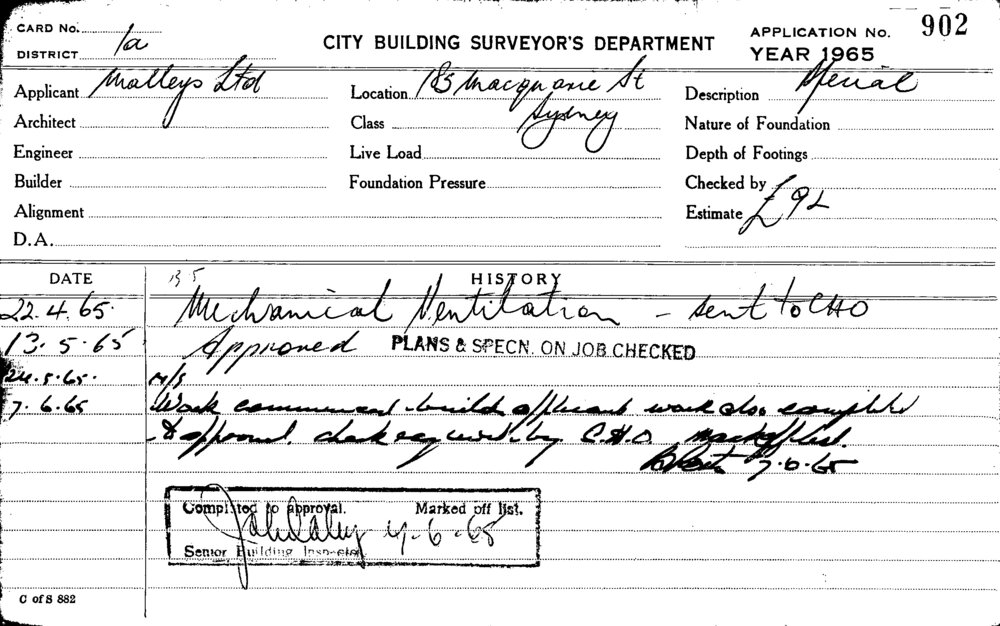 CARD No.
DISTRICT 1a
CITY BUILDING SURVEYOR'S DEPARTMENT
APPLICATION No. 902
YEAR 1965
Applicant Malleys Ltd
Location 185 Macquarie St Sydney
Description
Architect
Class
Nature of Foundation
Engineer
Live Load
Depth of Footings
Builder
Foundation Pressure
Checked by
Alignment
Estimate £92
D.A.
DATE
HISTORY
22.4.65. Mechanical Ventilation - sent to CHO
13.5.65 Approved PLANS & SPECN. ON JOB CHECKED
24.5.65. M/S
7.6.65 Work commenced builder applicant work also completed
& approval check required by C.H.O. mark off list.
7.6.65
Completed to approval. Marked off list.
6.65
Senior Building Inspector
C of S 882